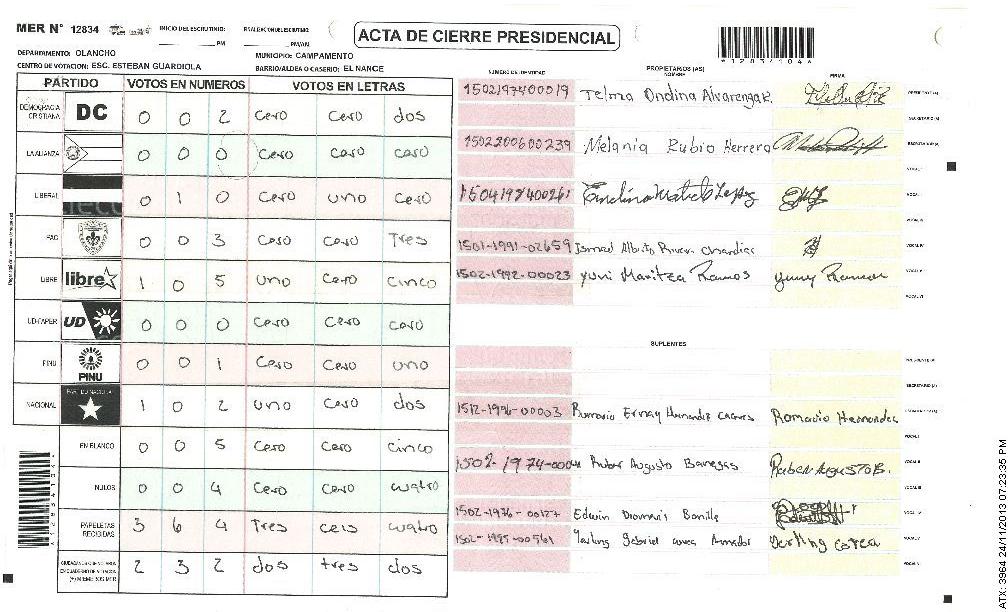 MER N° 12834
INICIO DEL ESCRUTINIO:
PM
PM/AM
ACTA DE CIERRE PRESIDENCIAL
*12834104*
DEPARTAMENTO: OLANCHO
MUNICIPIO: CAMPAMENTO
CENTRO DE VOTACION: ESC. ESTEBAN GUARDIOLA
BARRIO/ALDEA O CASERIO: EL NANCE
PARTIDO VOTOS EN NUMEROS VOTOS EN LETRAS
DEMOCRACIA CRISTIANA DC 0 0 2 Cero Cero dos
LA ALIANZA 0 0 0 Cero Cero Cero
LIBERAL 0 1 0 Cero uno Cero
PAC 0 0 3 Cero Cero Tres
LIBRE libre 1 0 5 uno Cero Cinco
UD-FAPER UD 0 0 0 Cero Cero Cero
PINU PINU 0 0 1 Cero Cero uno
NACIONAL 1 0 2 uno Cero dos
EN BLANCO 0 0 5 Cero Cero Cinco
NULOS 0 0 4 Cero Cero cuatro
PAPELETAS RECIBIDAS 3 6 4 Tres ceis cuatro
2 3 2 dos tres dos
NUMERO DE IDENTIDAD PROPIETARIOS (AS) NOMBRE FIRMA
1502197400019 Telma Ondina Alvarenga R.
1502200600239 Melania Rubio Herrera
1504197400261
1501-1991-02659 Ismael Alberto Rivera
1502-1992-00023 Yuri Maritza Ramos
SUPLENTES
1512-1996-00003 Romario Hernandez
1502-1974- Ruben Augusto Banegas Ruben Augusto B.
1502-1976-00127 Edwin Bonilla
1502-1995-00561 Yerling Gabriel Amador Yerling Correa
ATX: 3964 24/11/2013 07:23:35 PM